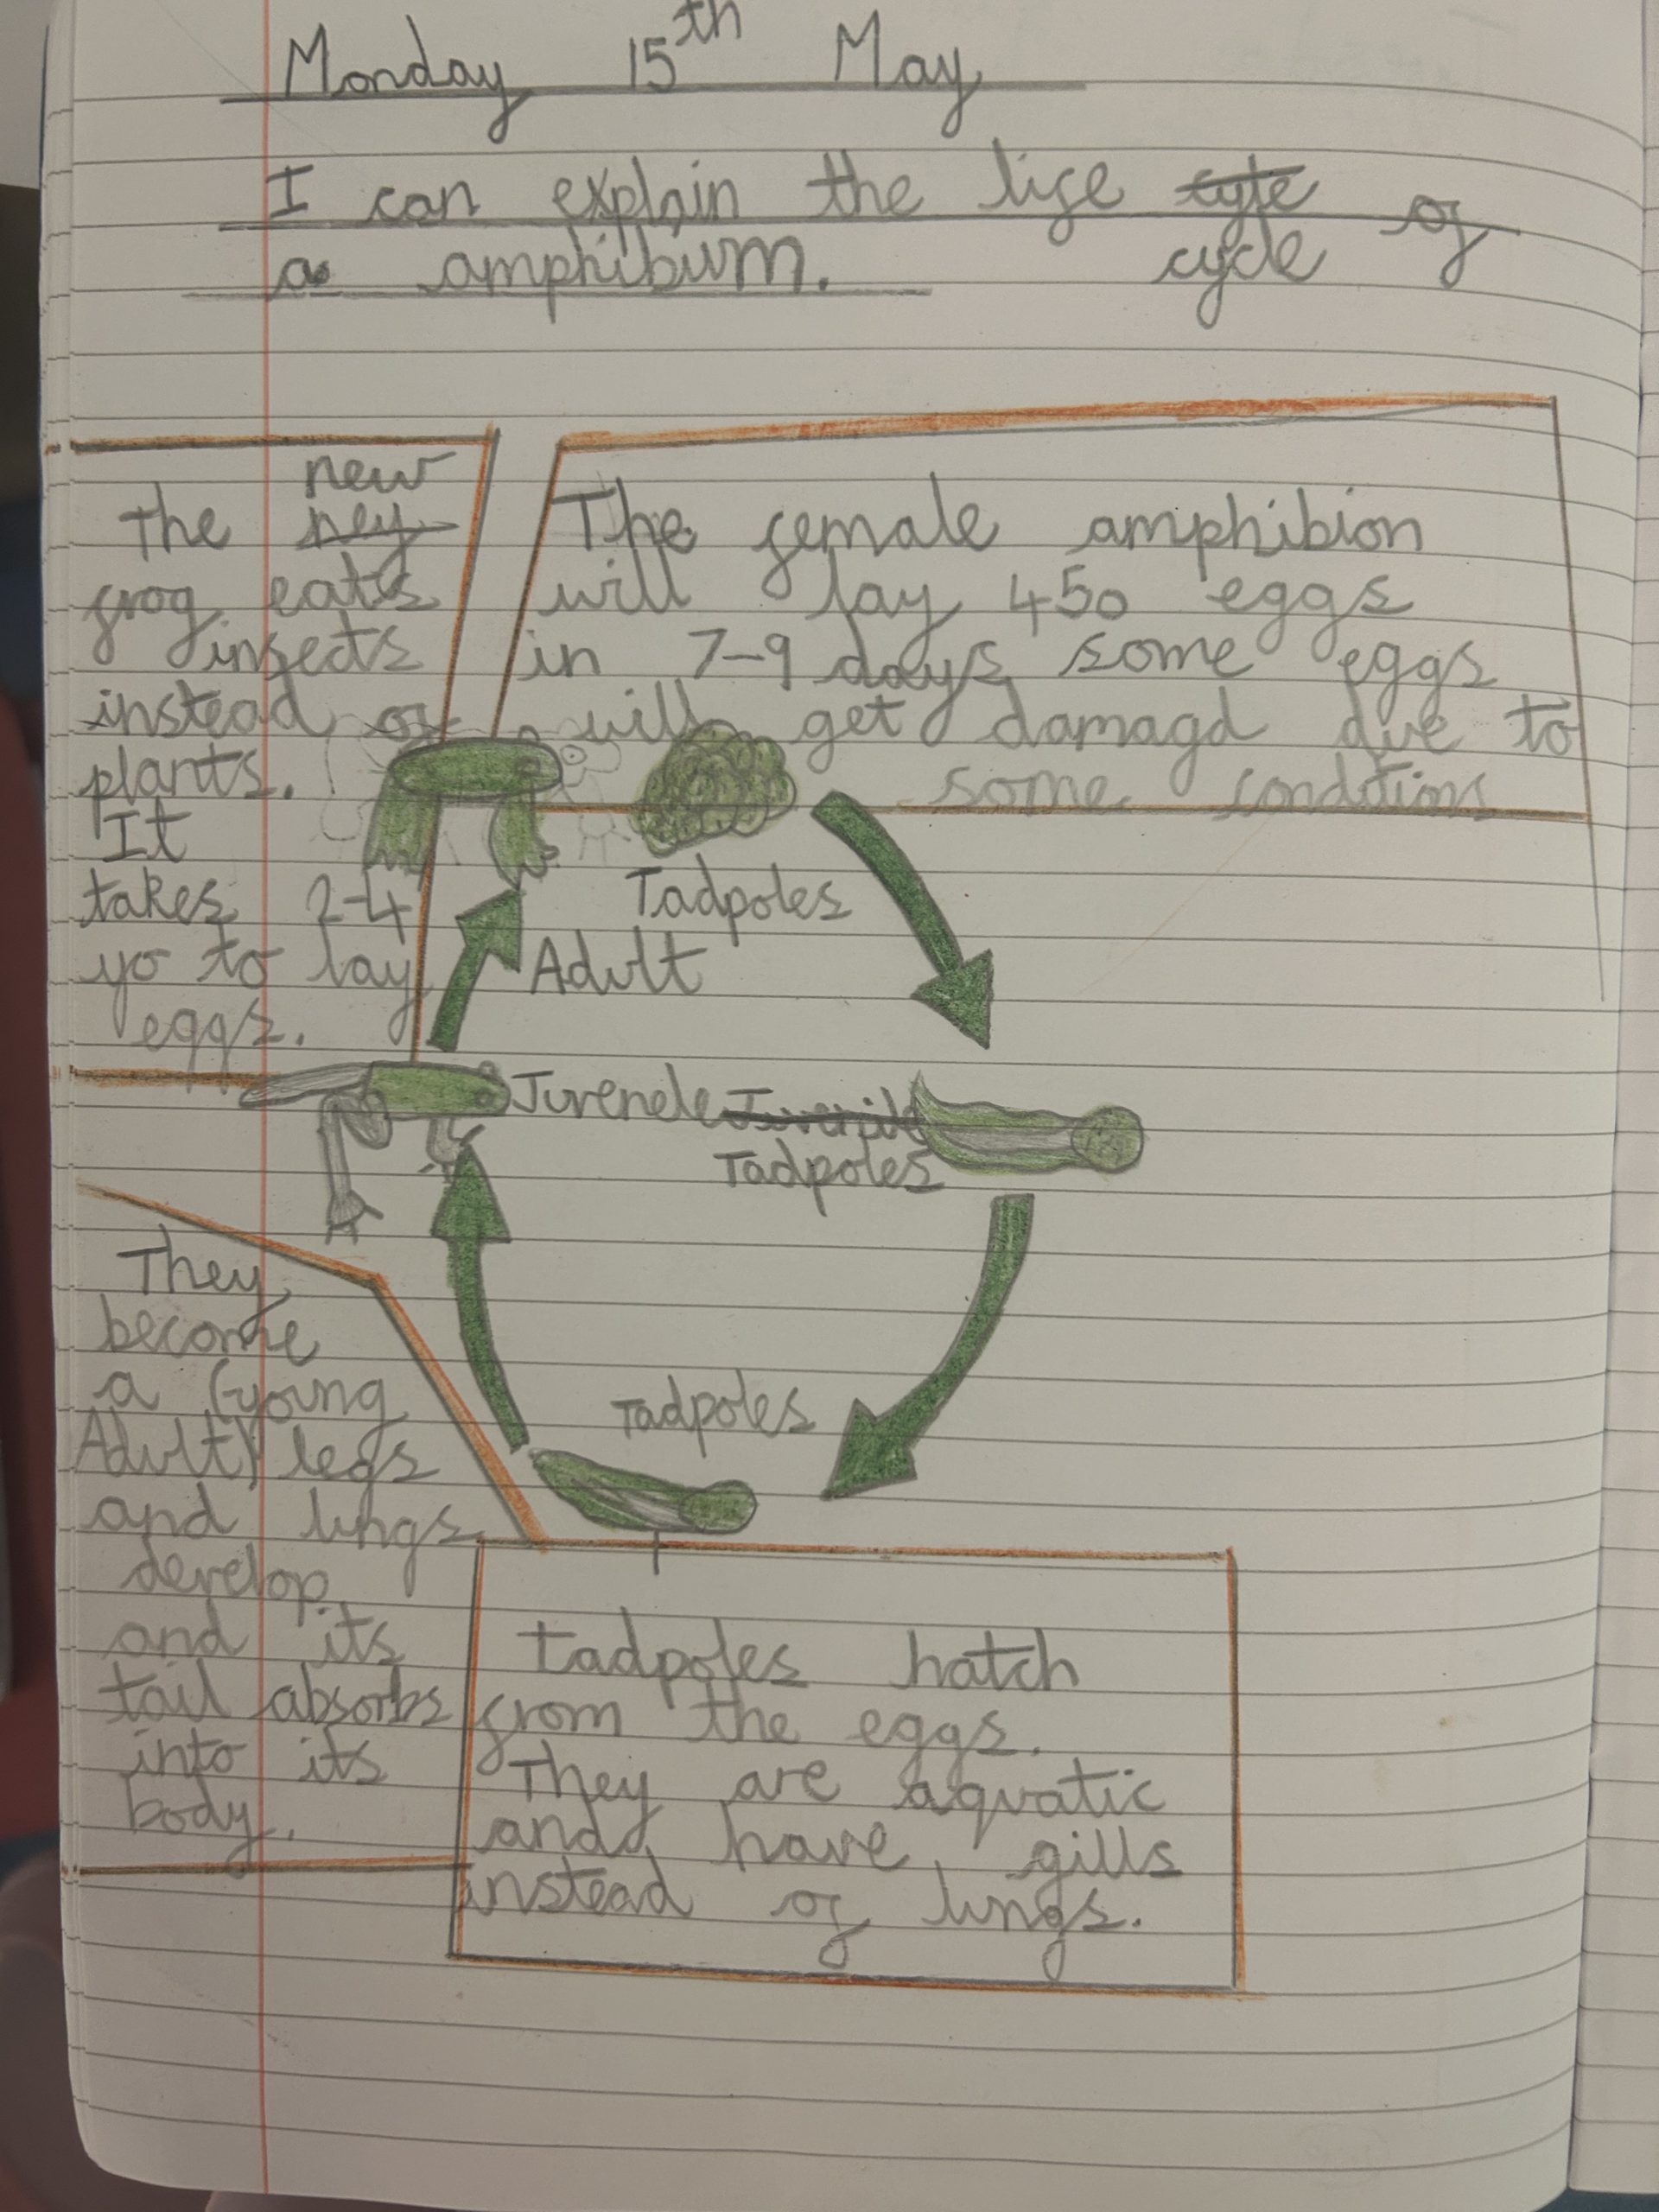 Monday 15th May
I can explain the life cyte of
a amphibum. cycle
new
The ney
frog eats
insects
instead of
plants.
It
takes 2-4
yo to lay
eggs.
The female amphibion
will lay 450 eggs
in 7-9 days some eggs
will get damagd due to
some conditions
Tadpoles
Adult
Juvenele Juvenile
Tadpoles
Tadpoles
They
become
a (young
Adult) legs
and lungs
develop
and its
tail absorbs
into its
body.
tadpoles hatch
from the eggs.
They are aquatic
and have gills
instead of lungs.